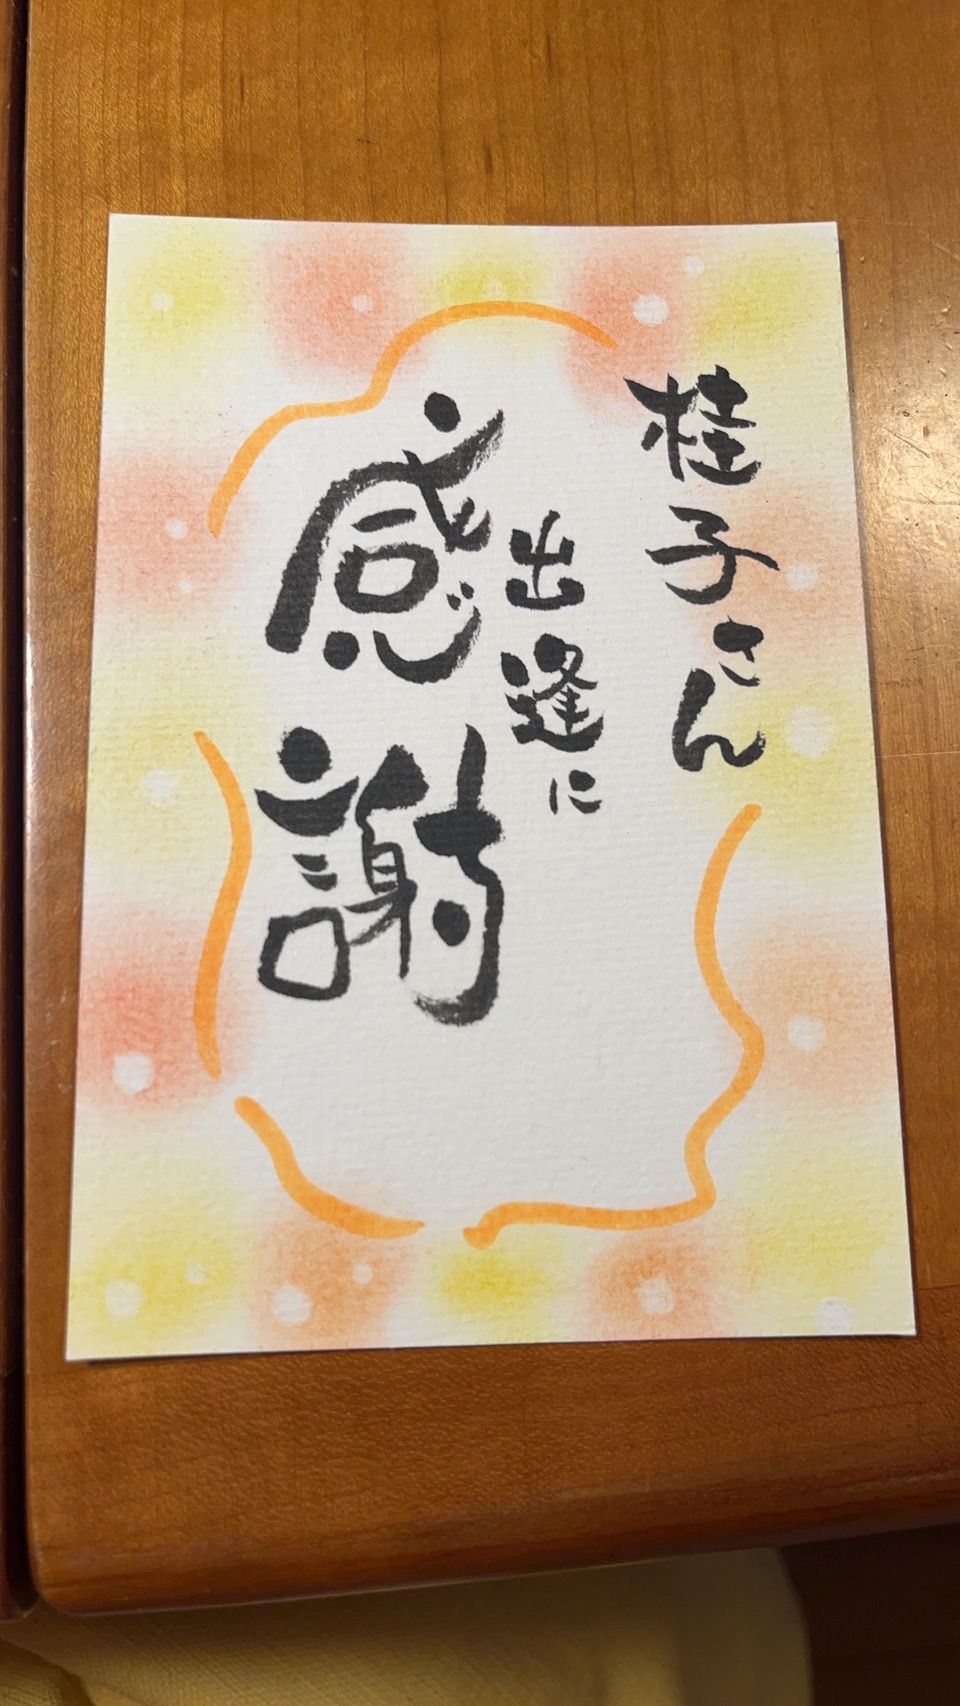 桂子さん
出逢に
感謝